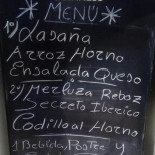 MENU
1º) Lasaña
Arroz Horno
Ensalada Queso
2º) Merluza Reboz
Secreto Iberico
Codillo al Horno
1 Bebida, Postre y